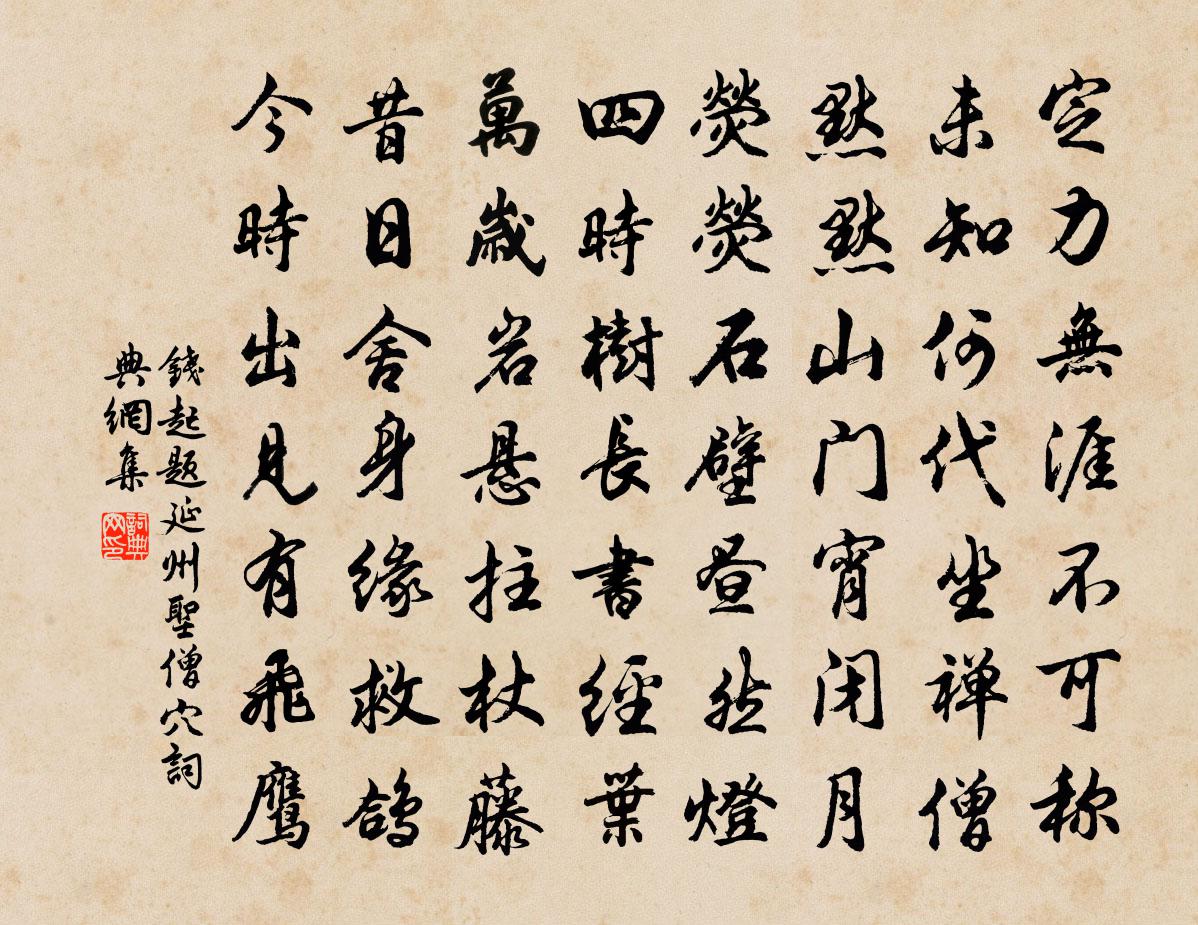 定力無涯不可称
未知何代坐禅僧
默默山门宵闭月
熒熒石壁昼然燈
四時樹長書經葉
萬歳岩悬拄杖藤
昔日舍身缘救鸽
今時出見有飛鷹
錢起题延州聖僧穴詞
典網集
詞典
网印